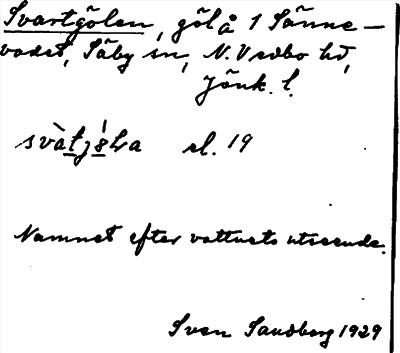 Svartgölen, göl å 1 Sänne-
vadet, Säby sn, N. Vedbo hd,
Jönk. l.
svàtjö́ɫa el. 19
Namnet efter vattnets utseende.
Sven Sandberg 1929